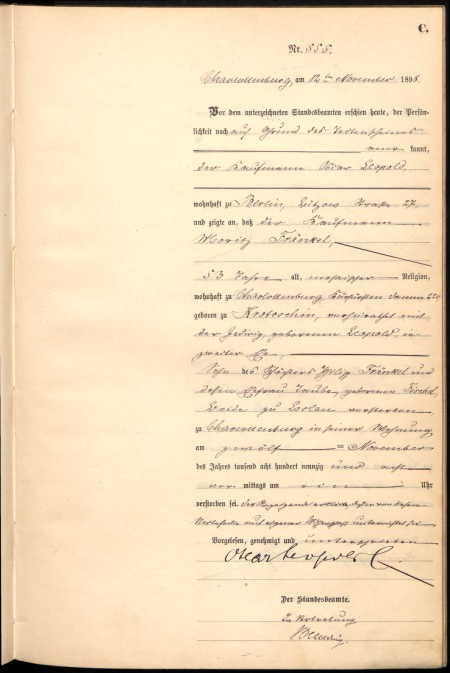 C.
Nr. 555.
Charlottenburg, am 12ten November 1898.
Vor dem unterzeichneten Standesbeamten erschien heute, der Persön-
lichkeit nach auf Grund des
kannt,
der Kaufmann Oscar Leopold,
wohnhaft zu Berlin, Lützow Straße 27,
und zeigte an, daß der Kaufmann
Moritz Fränkel,
53 Jahre alt, mosaischer Religion,
wohnhaft zu Charlottenburg Kurfürsten Damm
geboren zu Krotoschin, verheirathet mit
der Hedwig, geborenen Leopold, in
zweiter Ehe,
Sohn des Fränkel und
dessen Ehefrau geborenen
Beide zu verstorben,
zu Charlottenburg in seiner Wohnung
am zwölften November
des Jahres tausend acht hundert neunzig und acht
vor mittags um ein Uhr
verstorben sei. Der Anzeigende erklärte, daß er von diesem
Sterbefalle aus eigener Wissenschaft unterrichtet sei.
Vorgelesen, genehmigt und unterschrieben
Oscar Leopold
Der Standesbeamte.
In Vertretung